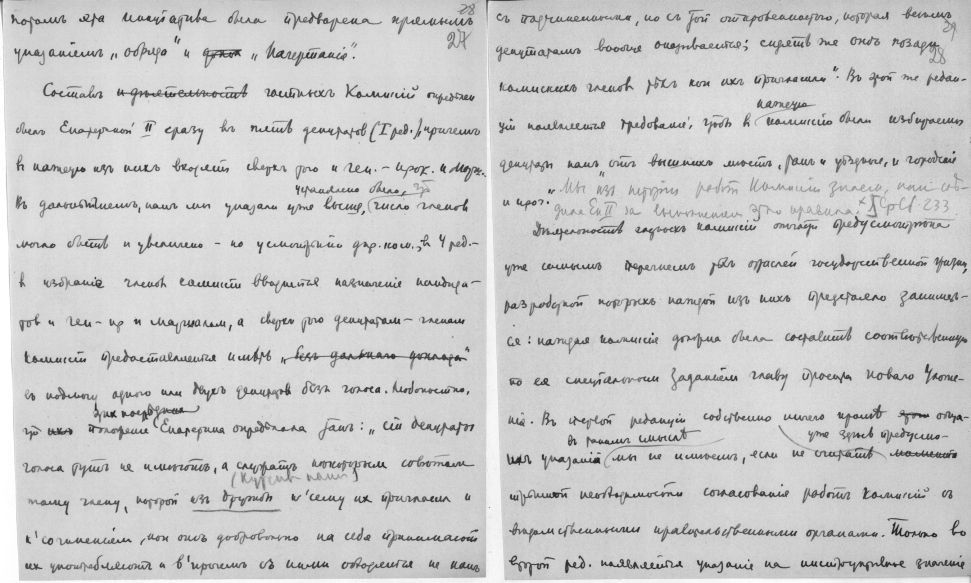 28
27
потомъ эта инициатива была предварена прямымъ
указаніемъ „обряда" и „Начертанія".
Составъ и дѣятельность частныхъ Комиссій опредѣлен
былъ Екатериной II сразу въ пять депутатовъ (I ред.), причемъ
въ каждую изъ нихъ входятъ сверхъ того и ген.-прок. и Марш.
управлено было, что
Въ дальнѣйшемъ, какъ мы указали уже выше, число членовъ
могло быть и увеличено - по усмотрѣнію дир. ком.; въ 4 ред.-
въ избраніе членовъ комиссіи вводится назначеніе кандида-
товъ и ген-пр и маршалом, а сверхъ того депутатам-членам
комиссіи предоставляется имѣть „безъ дальняго доклада"
въ подмогу одного или двухъ депутатов безъ голоса. Любопытно,
этихъ посредниковъ
что положеніе Екатерина опредѣляла такъ: „сіи депутаты
голоса тутъ не имѣютъ, а служатъ нѣкоторымъ совѣтомъ
(Курсивъ нашъ)
тому члену, который изъ другихъ к'сему их пригласил и
к'сочиненіям, кои онъ добровольно на себя принимаетъ
их употребляетъ и в'прочемъ съ ними обходится не какъ
29
28
съ подчиненными, но съ той откровенностью, которая всѣмъ
депутатамъ вообще оказывается; сидятъ же онѣ позади
комисскихъ членов тѣхъ кои ихъ пригласили". Въ этой же редак-
каждую
ціи появляется требованіе, чтобъ въ комиссію были избираемы
депутаты какъ „отъ вышнихъ мѣстъ, такъ и уѣздные, и городскіе
и проч.
„Мы изъ исторіи работ Комиссіи знаем, как слѣ-
дила Ек II за выполненіем этого правила. Ср Сб. 233
Дѣятельность частныхъ комиссій отчасти предусмотрѣна
уже самымъ перечнемъ тѣхъ отраслей государственной жизни,
разработкой которыхъ каждой изъ нихъ предстояло занимать-
ся: каждая комиссія должна была составить соотвѣтственную
по ея спеціальному заданію главу проекта Новаго Уложе-
нія. Въ первой редакціи собственно ничего кромѣ обща-
въ такомъ смыслѣ
уже здѣсь предусмо-
указанія мы не имѣемъ, если не считать
трѣнной необходимости согласованія работъ Комиссій съ
вѣдомственными правительственными органами. Только во
второй ред. появляется указаніе на инструктивное значеніе